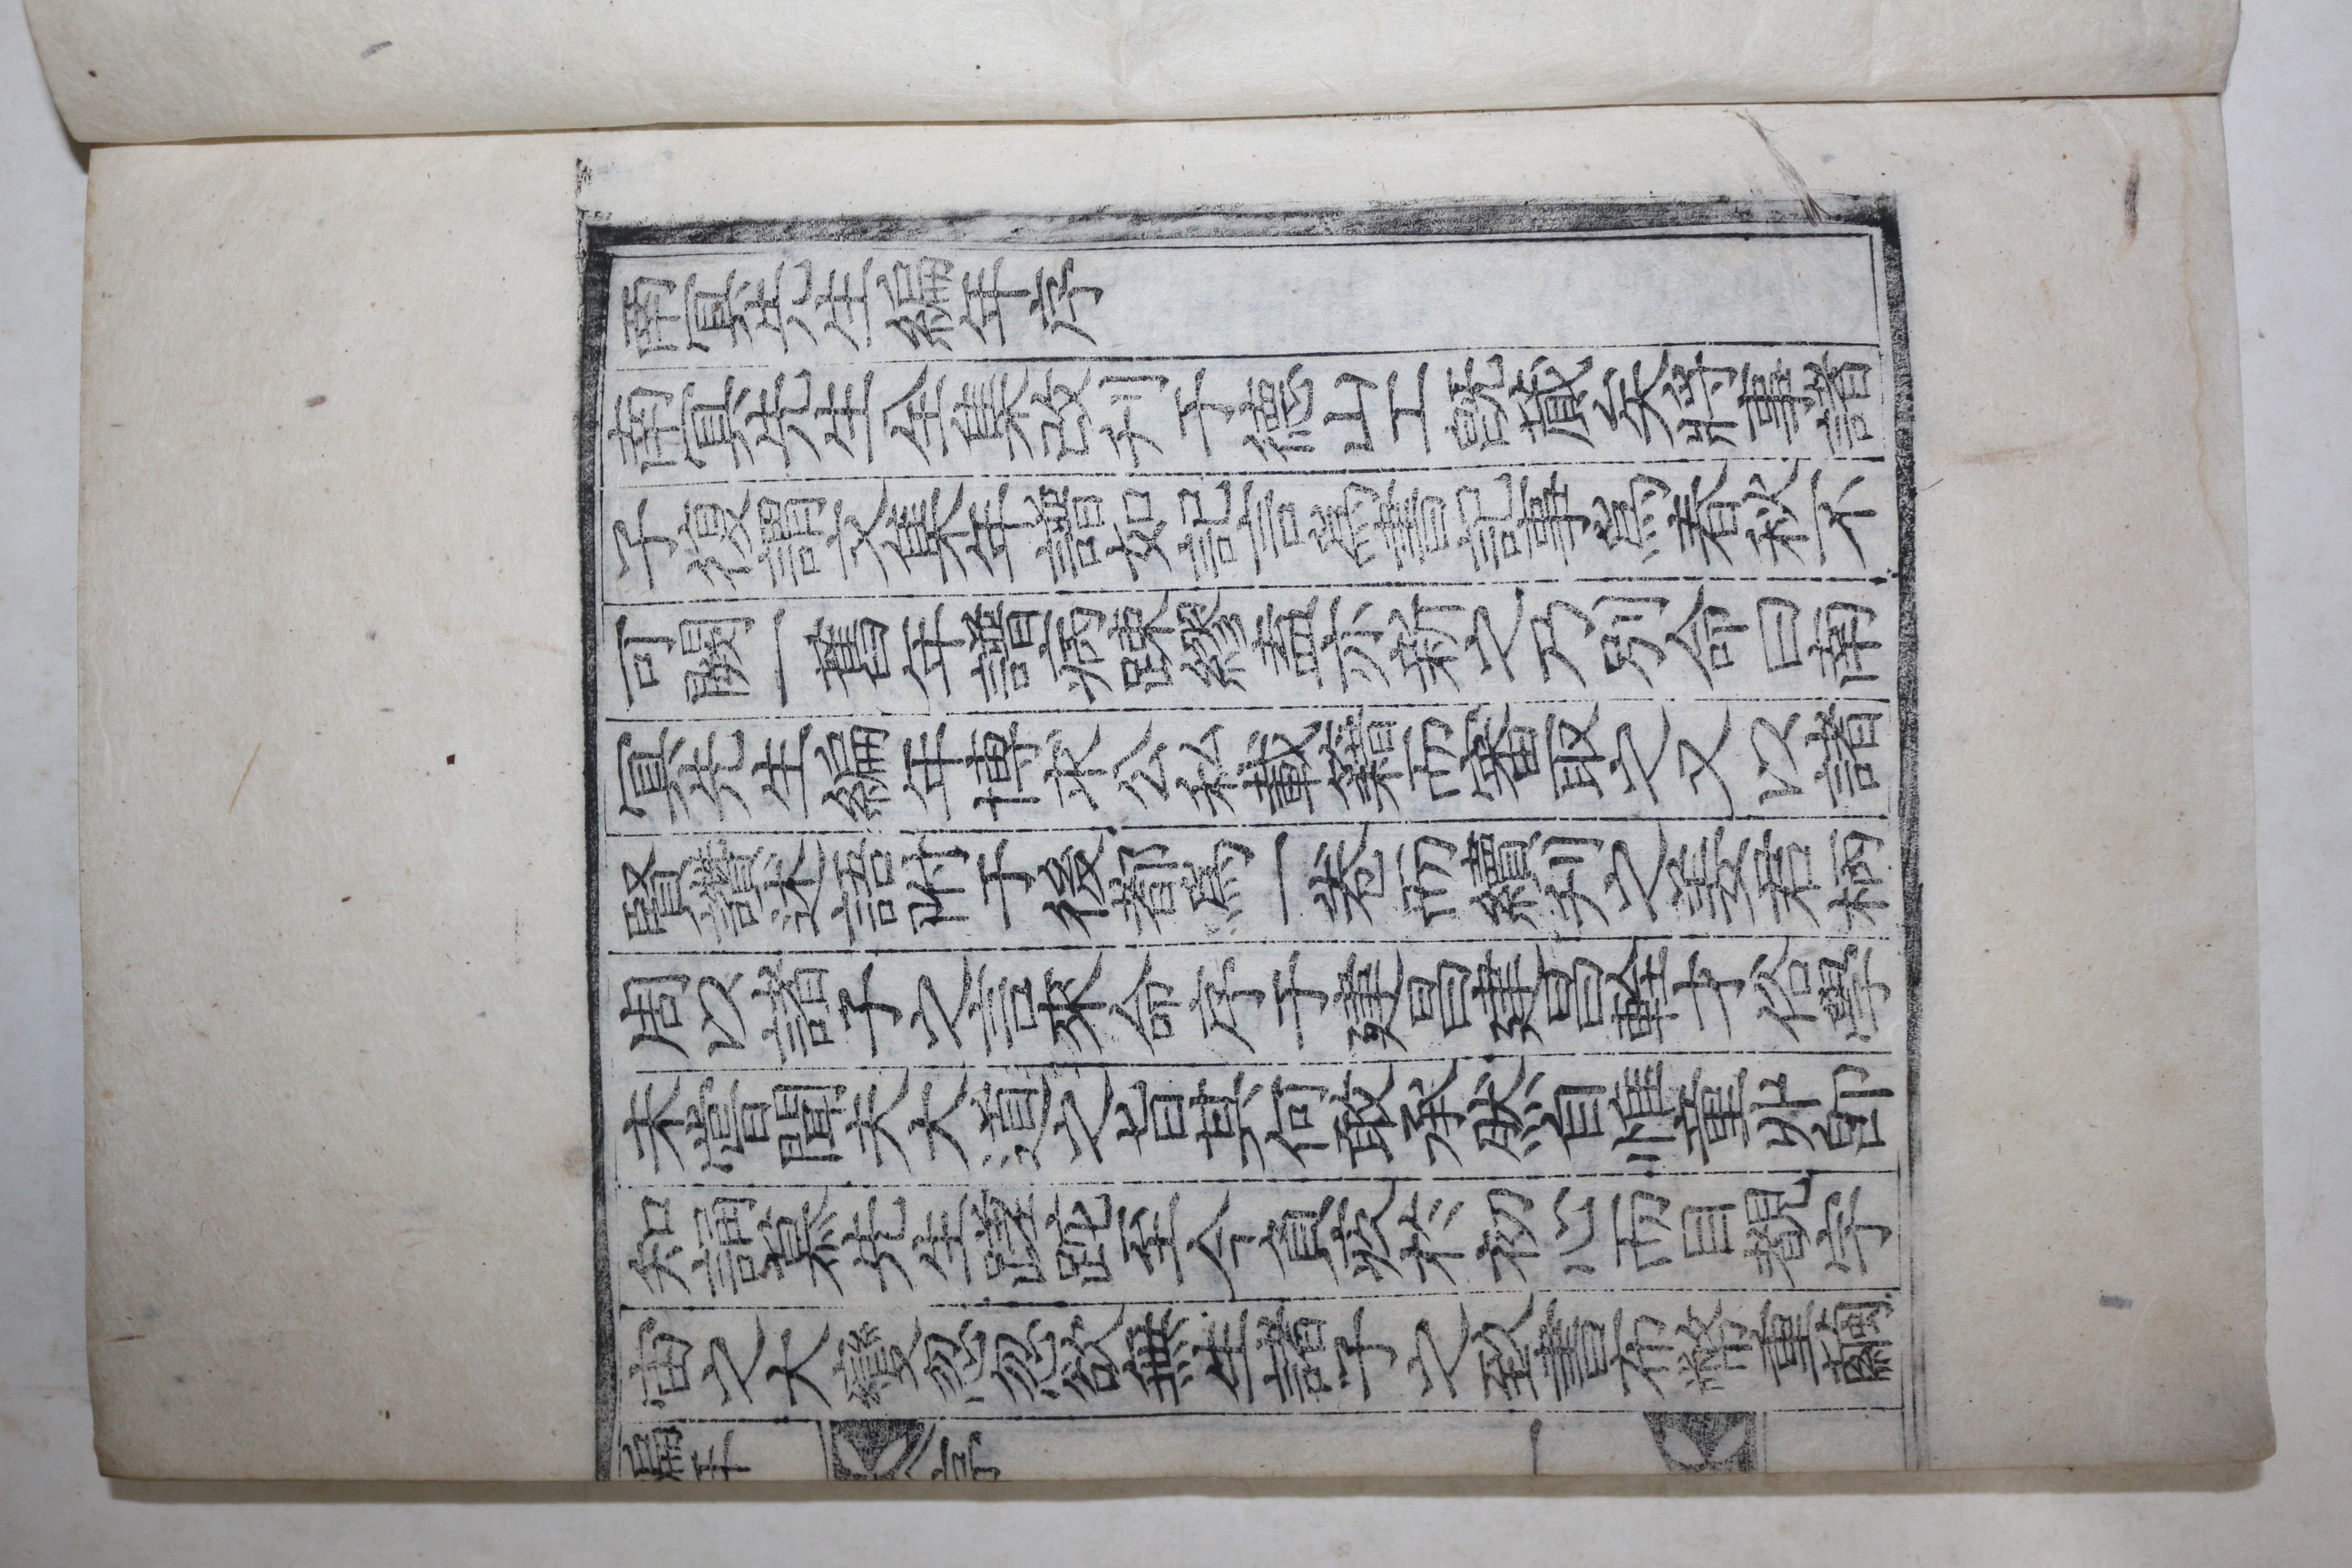 南冥先生編年序
南冥先生全集改刋于德山工旣蕆矣將事諸
子復謂文集年譜如記言爲書記事爲春秋不
可闕一舊年譜病踈繆盍亦新之乃別命曰南
冥先生編年博求公私載籍而審取之又以諸
賢讚述語附于後都爲一卷而續刋之姜君柄
周以諸子之言來命序于建昌建昌輇才俗學
未嘗聞夫大道之旨其何敢承然自惟童丱卽
知誦慕先生蹉跎至今負疚於初心而目覩宇
宙之大變忽忽欲無生諸子之致書布幣重繭
編年
序
一